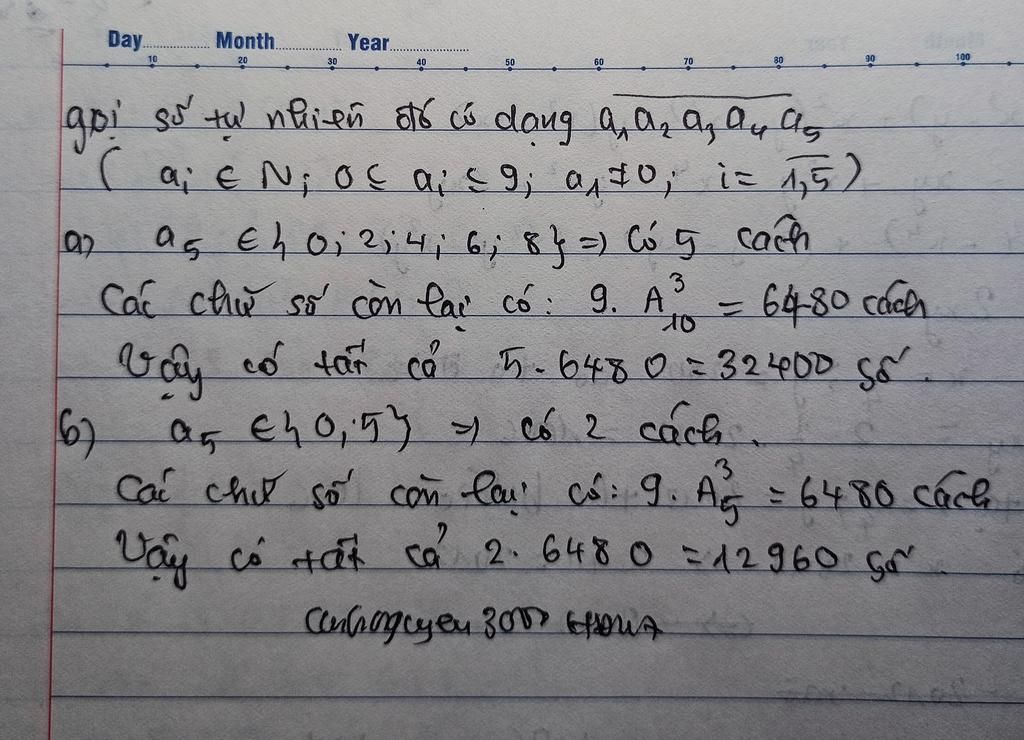 Day Month Year
10 20 30 40 50 60 70 80 90 100
gọi số tự nhiên đó có dạng a₁a₂a₃a₄a₅
( aᵢ ∈ N; 0 ≤ aᵢ ≤ 9; a₁ ≠ 0; i = 1,5 )
a) a₅ ∈ { 0; 2; 4; 6; 8 } => Có 5 cách
Các chữ số còn lại có: 9. A³₁₀ = 6480 cách
Vậy có tất cả 5. 6480 = 32400 số.
b) a₅ ∈ { 0; 5 } => có 2 cách.
Các chữ số còn lại có: 9. A³₅ = 6480 cách
Vậy có tất cả 2. 6480 = 12960 số.